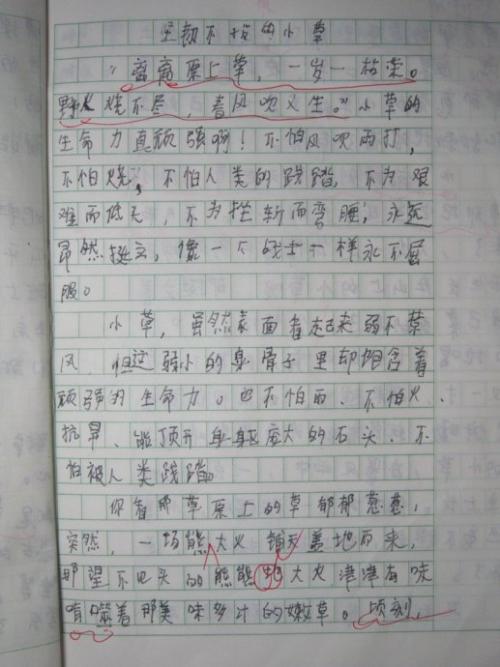 坚韧不拔的小草
“离离原上草，一岁一枯荣。
野火烧不尽，春风吹又生。”小草的
生命力真顽强啊！不怕风吹雨打，
不怕烧，不怕人类的践踏，不为艰
难而低头，不为挫折而弯腰，永远
昂然挺立，像一个战士一样永不屈
服。
小草，虽然表面看起来弱不禁
风，但这弱小的身骨子里却饱含着
顽强的生命力。也不怕雨、不怕火、
抗旱、能顶开身躯庞大的石头、不
怕被人类践踏。
你看那草原上的草郁郁葱葱，
突然，一场熊大火铺天盖地而来，
那望不见头的熊熊大火津津有味
啃噬着那美味多汁的嫩草。顷刻，